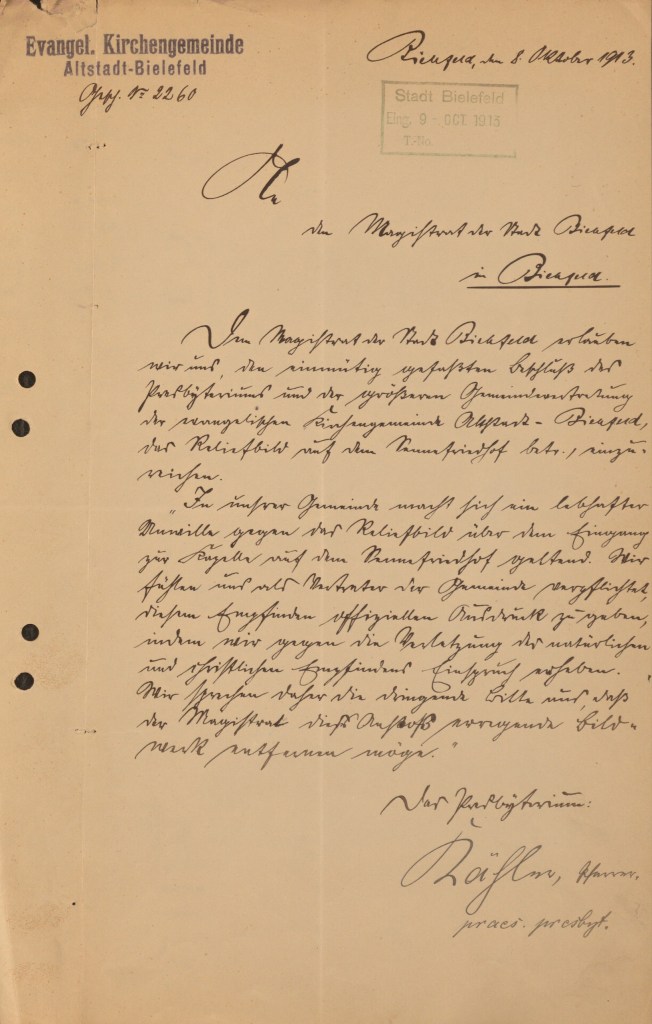 Evangel. Kirchengemeinde
Altstadt-Bielefeld
Gesch. No 2260
Bielefeld, den 8. Oktober 1913.
Stadt Bielefeld
Eing. 9 - OCT. 1913
T.-No.
An
den Magistrat der Stadt Bielefeld
in Bielefeld.
Dem Magistrat der Stadt Bielefeld erlauben
wir uns, den einmütig gefaßten Beschluß des
Presbyteriums und der größeren Gemeindevertretung
der evangelischen Kirchengemeinde Altstadt-Bielefeld,
das Reliefbild auf dem Sennefriedhof betr., einzu-
reichen.
„In unsrer Gemeinde macht sich ein lebhafter
Unwille gegen das Reliefbild über dem Eingang
zur Kapelle auf dem Sennefriedhof geltend. Wir
fühlen uns als Vertreter der Gemeinde verpflichtet,
diesem Empfinden offiziellen Ausdruck zu geben,
indem wir gegen die Verletzung des natürlichen
und christlichen Empfindens Einspruch erheben.
Wir sprechen daher die dringende Bitte aus, daß
der Magistrat dies Anstoß erregende Bild=
werk entfernen möge."
Das Presbyterium:
Kähler, Pfarrer.
praes. presbyt.